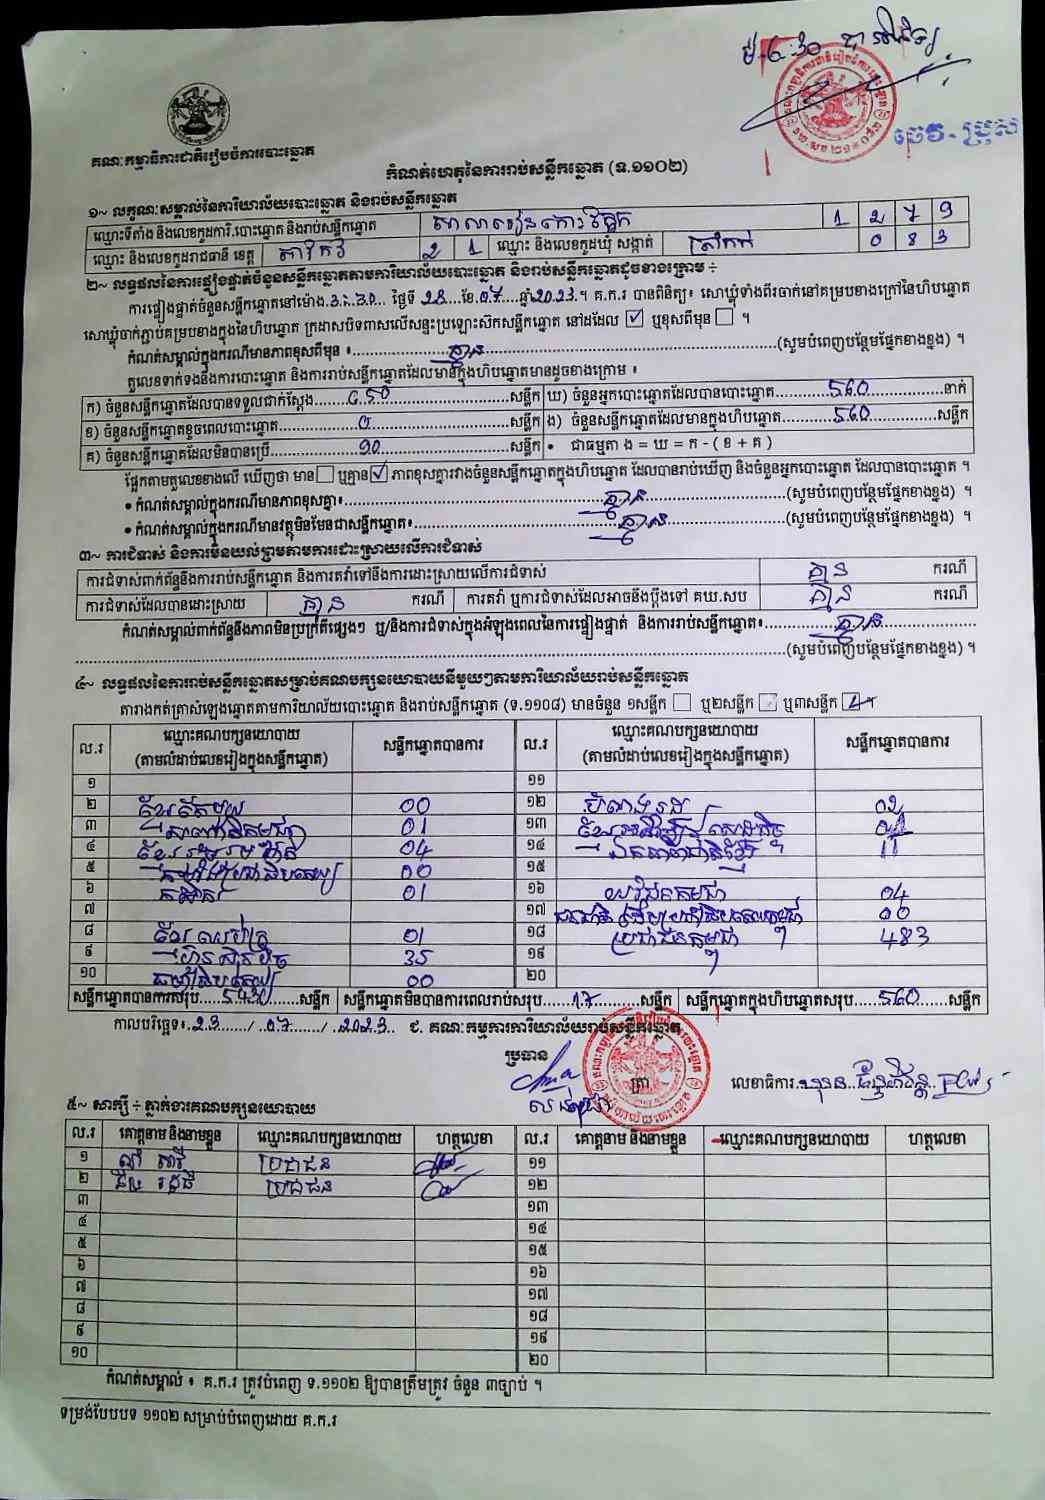 គណៈកម្មាធិការជាតិរៀបចំការបោះឆ្នោត
កំណត់ហេតុនៃការរាប់សន្លឹកឆ្នោត (ទ.១១០២)
១~ លក្ខណៈសម្គាល់នៃការិយាល័យបោះឆ្នោត និងរាប់សន្លឹកឆ្នោត
ឈ្មោះទីតាំង និងលេខកូដការិ.បោះឆ្នោត និងរាប់សន្លឹកឆ្នោត 1 2 7 9
ឈ្មោះ និងលេខកូដរាជធានី ខេត្ត តាកែវ 2 1 ឈ្មោះ និងលេខកូដឃុំ សង្កាត់ 0 8 3
២~ លទ្ធផលនៃការផ្ទៀងផ្ទាត់ចំនួនសន្លឹកឆ្នោតតាមការិយាល័យបោះឆ្នោត និងរាប់សន្លឹកឆ្នោតដូចខាងក្រោម ÷
ការផ្ទៀងផ្ទាត់ចំនួនសន្លឹកឆ្នោតនៅម៉ោង.3:30... ថ្ងៃទី 23....ខែ.07....ឆ្នាំ2023.។ គ.ក.រ បានពិនិត្យ៖ សោឃ្លុំទាំងពីរចាក់នៅគម្របខាងក្រៅនៃហិបឆ្នោត
សោឃ្លុំចាក់ភ្ជាប់គម្របខាងក្នុងនៃហិបឆ្នោត ក្រដាសបិទពាសលើសន្ទះប្រឡោះស៊កសន្លឹកឆ្នោត នៅដដែល ☑ ឬខុសពីមុន ☐ ។
កំណត់សម្គាល់ក្នុងករណីមានភាពខុសពីមុន ៖......គ្មាន......(សូមបំពេញបន្ថែមផ្នែកខាងខ្នង) ។
តួលេខទាក់ទងនឹងការបោះឆ្នោត និងការរាប់សន្លឹកឆ្នោតដែលមានក្នុងហិបឆ្នោតមានដូចខាងក្រោម ៖
ក) ចំនួនសន្លឹកឆ្នោតដែលបានទទួលជាក់ស្តែង......650......សន្លឹក ឃ) ចំនួនអ្នកបោះឆ្នោតដែលបានបោះឆ្នោត......560......នាក់
ខ) ចំនួនសន្លឹកឆ្នោតខូចពេលបោះឆ្នោត......0......សន្លឹក ង) ចំនួនសន្លឹកឆ្នោតដែលមានក្នុងហិបឆ្នោត......560......សន្លឹក
គ) ចំនួនសន្លឹកឆ្នោតដែលមិនបានប្រើ......90......សន្លឹក • ជាធម្មតា ង = ឃ = ក - ( ខ + គ )
ផ្អែកតាមតួលេខខាងលើ ឃើញថា មាន ☐ ឬគ្មាន ☑ ភាពខុសគ្នារវាងចំនួនសន្លឹកឆ្នោតក្នុងហិបឆ្នោត ដែលបានរាប់ឃើញ និងចំនួនអ្នកបោះឆ្នោត ដែលបានបោះឆ្នោត ។
• កំណត់សម្គាល់ក្នុងករណីមានភាពខុសគ្នា៖......គ្មាន......(សូមបំពេញបន្ថែមផ្នែកខាងខ្នង) ។
• កំណត់សម្គាល់ក្នុងករណីមានវត្ថុមិនមែនជាសន្លឹកឆ្នោត៖......គ្មាន......(សូមបំពេញបន្ថែមផ្នែកខាងខ្នង) ។
៣~ ការជំទាស់ និងការមិនយល់ព្រមតាមការដោះស្រាយលើការជំទាស់
ការជំទាស់ពាក់ព័ន្ធនឹងការរាប់សន្លឹកឆ្នោត និងការតវ៉ាទៅនឹងការដោះស្រាយលើការជំទាស់ គ្មាន ករណី
ការជំទាស់ដែលបានដោះស្រាយ គ្មាន ករណី ការតវ៉ា ឬការជំទាស់ដែលអាចនឹងប្តឹងទៅ គឃ.សប គ្មាន ករណី
កំណត់សម្គាល់ពាក់ព័ន្ធនឹងភាពមិនប្រក្រតីផ្សេងៗ ឬ/និងការជំទាស់ក្នុងអំឡុងពេលនៃការផ្ទៀងផ្ទាត់ និងការរាប់សន្លឹកឆ្នោត៖......គ្មាន......
......(សូមបំពេញបន្ថែមផ្នែកខាងខ្នង) ។
៤~ លទ្ធផលនៃការរាប់សន្លឹកឆ្នោតសម្រាប់គណបក្សនយោបាយនីមួយៗតាមការិយាល័យរាប់សន្លឹកឆ្នោត
តារាងកត់ត្រាសំឡេងឆ្នោតតាមការិយាល័យបោះឆ្នោត និងរាប់សន្លឹកឆ្នោត (ទ.១១០៨) មានចំនួន ១សន្លឹក ☐ ឬ២សន្លឹក ☐ ឬ៣សន្លឹក ☑
ល.រ ឈ្មោះគណបក្សនយោបាយ (តាមលំដាប់លេខរៀងក្នុងសន្លឹកឆ្នោត) សន្លឹកឆ្នោតបានការ ល.រ ឈ្មោះគណបក្សនយោបាយ (តាមលំដាប់លេខរៀងក្នុងសន្លឹកឆ្នោត) សន្លឹកឆ្នោតបានការ
១ ១១
២ ខ្មែរតែមួយ 00 ១២ 02
៣ 01 ១៣
៤ 04 ១៤ 11
៥ 00 ១៥
៦ កសិករ 01 ១៦ យុវជនកម្ពុជា 04
៧ ១៧ 00
៨ 01 ១៨ ប្រជាជនកម្ពុជា 483
៩ ហ្វ៊ុនស៊ិនប៉ិច 35 ១៩
១០ 00 ២០
សន្លឹកឆ្នោតបានការសរុប......សន្លឹក សន្លឹកឆ្នោតមិនបានការពេលរាប់សរុប......17......សន្លឹក សន្លឹកឆ្នោតក្នុងហិបឆ្នោតសរុប......560......សន្លឹក
កាលបរិច្ឆេទ៖..23....../..07....../..2023.. ជ. គណៈកម្មការការិយាល័យរាប់សន្លឹកឆ្នោត
ប្រធាន
ត្រា
លេខាធិការ
៥~ សាក្សី ÷ ភ្នាក់ងារគណបក្សនយោបាយ
ល.រ គោត្តនាម និងនាមខ្លួន ឈ្មោះគណបក្សនយោបាយ ហត្ថលេខា ល.រ គោត្តនាម និងនាមខ្លួន ឈ្មោះគណបក្សនយោបាយ ហត្ថលេខា
១ ប្រជាជន ១១
២ ប្រជាជន ១២
៣ ១៣
៤ ១៤
៥ ១៥
៦ ១៦
៧ ១៧
៨ ១៨
៩ ១៩
១០ ២០
កំណត់សម្គាល់ ៖ គ.ក.រ ត្រូវបំពេញ ទ.១១០២ ឱ្យបានត្រឹមត្រូវ ចំនួន ៣ច្បាប់ ។
ទម្រង់បែបបទ ១១០២ សម្រាប់បំពេញដោយ គ.ក.រ